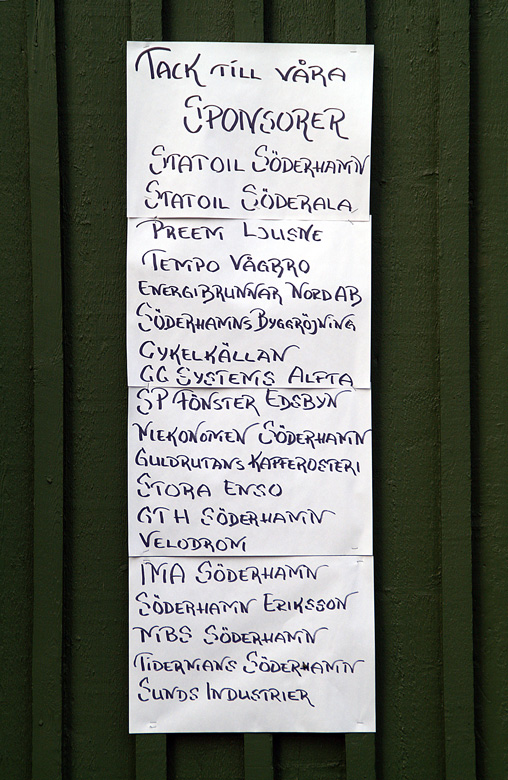 TACK TILL VÅRA
SPONSORER
STATOIL SÖDERHAMN
STATOIL SÖDERALA
PREEM LJUSNE
TEMPO VÅGBRO
ENERGIBRUNNAR NORD AB
SÖDERHAMNS BYGGRÖJNING
CYKELKÄLLAN
GG SYSTEMS ALFTA
SP FÖNSTER EDSBYN
MEKONOMEN SÖDERHAMN
GULDRUTANS KAFFEROSTERI
STORA ENSO
GTH SÖDERHAMN
VELODROM
IMA SÖDERHAMN
SÖDERHAMN ERIKSSON
MBS SÖDERHAMN
TIDERMANS SÖDERHAMN
SUNDS INDUSTRIER